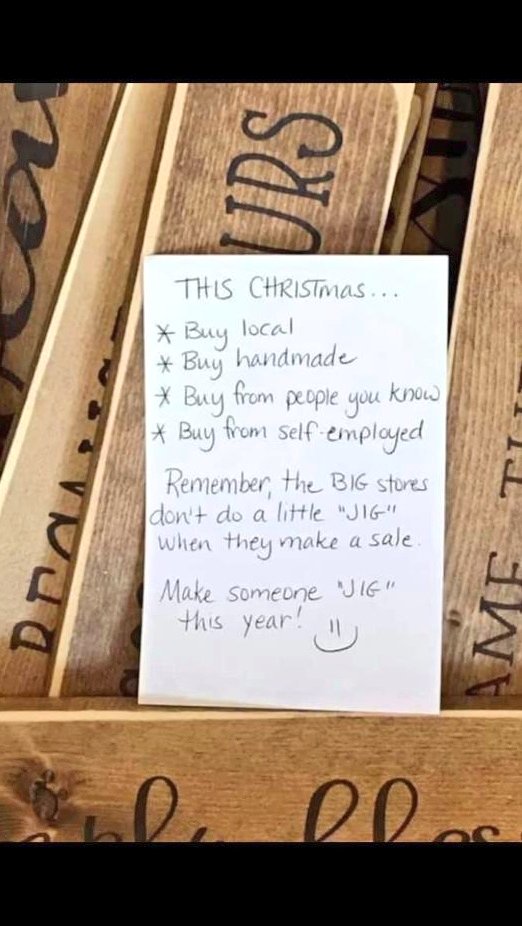 URS
THIS CHRISTmas...
* Buy local
* Buy handmade
* Buy from people you know
* Buy from self-employed
Remember, the BIG stores
don't do a little "JIG"
when they make a sale.
Make someone "JIG"
this year!
AME